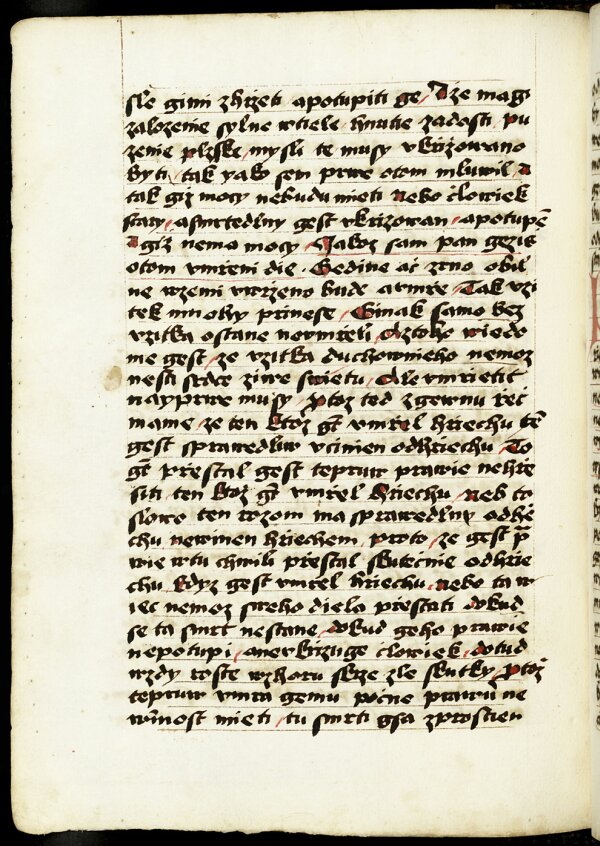 sle gimi zhrzeti apotupiti ge / A ze magi
zalozenie sylne wtiele / hnutie zadosti / pu
zenie plzske / mysli te musy vkrizowano
byti / tak yako sem prwe otom mluwil / A
tak giz mocy nebudu mieti Nebo clowiek
stary / asmrtedlny gest vkrizowan / apotupē
A giz nema mocy / Jakoz sam pan gezis
otom vmrzeni die . Gedine ac zrno obil
ne wzemi vwrzeno bude avmrze / Tak vzi
tek mnohy prinese / Ginak samo bez
vzitka ostane nevmreli / Aztoho wiedo
me gest / ze vzitka duchownieho nemoz
nesti srdce ziwe swietu / Ale vmrietit
nayprwe musy / Protoz ted zgewnu rec
mame / ze ten ktoz gt vmrel hriechu tē
gest sprawedliw vcinien odhriechu / To
gt prestal gest tepruw prawie nehre
siti / ten ktoz gt vmrel hriechu / Neb to
slowo ten rozom ma sprawedlny odhrie
chu newinen hriechem / proto / ze gest p̄
wie wtu chwili prestal skutecnie odhrie
chu / kdyz gest vmrel hriechu / Nebo ta w
iec nemoz sweho diela prestati / dokud
se ta smrt nestane / dokud geho prawie
nepotupi / anevkrizuge clowiek / dotud
wzdy roste wzhoru skrze zle skutky / Ptoz
tepruw vmra gemu pocne prawu ne
winnost mieti / tu smrti gsa zprostien